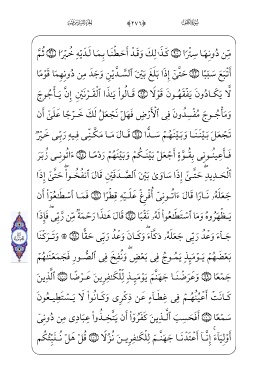 مِّن دُونِهَا سِتْرًا ۝ كَذَٰلِكَ وَقَدْ أَحَطْنَا بِمَا لَدَيْهِ خُبْرًا ۝ ثُمَّ
أَتْبَعَ سَبَبًا ۝ حَتَّىٰٓ إِذَا بَلَغَ بَيْنَ ٱلسَّدَّيْنِ وَجَدَ مِن دُونِهِمَا قَوْمًا
لَّا يَكَادُونَ يَفْقَهُونَ قَوْلًا ۝ قَالُوا۟ يَٰذَا ٱلْقَرْنَيْنِ إِنَّ يَأْجُوجَ
وَمَأْجُوجَ مُفْسِدُونَ فِى ٱلْأَرْضِ فَهَلْ نَجْعَلُ لَكَ خَرْجًا عَلَىٰٓ أَن
تَجْعَلَ بَيْنَنَا وَبَيْنَهُمْ سَدًّا ۝ قَالَ مَا مَكَّنِّى فِيهِ رَبِّى خَيْرٌ
فَأَعِينُونِى بِقُوَّةٍ أَجْعَلْ بَيْنَكُمْ وَبَيْنَهُمْ رَدْمًا ۝ ءَاتُونِى زُبَرَ
ٱلْحَدِيدِ ۖ حَتَّىٰٓ إِذَا سَاوَىٰ بَيْنَ ٱلصَّدَفَيْنِ قَالَ ٱنفُخُوا۟ ۖ حَتَّىٰٓ إِذَا
جَعَلَهُۥ نَارًا قَالَ ءَاتُونِىٓ أُفْرِغْ عَلَيْهِ قِطْرًا ۝ فَمَا ٱسْطَٰعُوٓا۟ أَن
يَظْهَرُوهُ وَمَا ٱسْتَطَٰعُوا۟ لَهُۥ نَقْبًا ۝ قَالَ هَٰذَا رَحْمَةٌ مِّن رَّبِّى ۖ فَإِذَا
جَآءَ وَعْدُ رَبِّى جَعَلَهُۥ دَكَّآءَ ۖ وَكَانَ وَعْدُ رَبِّى حَقًّا ۝ ۞ وَتَرَكْنَا
بَعْضَهُمْ يَوْمَئِذٍ يَمُوجُ فِى بَعْضٍ ۖ وَنُفِخَ فِى ٱلصُّورِ فَجَمَعْنَٰهُمْ
جَمْعًا ۝ وَعَرَضْنَا جَهَنَّمَ يَوْمَئِذٍ لِّلْكَٰفِرِينَ عَرْضًا ۝ ٱلَّذِينَ
كَانَتْ أَعْيُنُهُمْ فِى غِطَآءٍ عَن ذِكْرِى وَكَانُوا۟ لَا يَسْتَطِيعُونَ
سَمْعًا ۝ أَفَحَسِبَ ٱلَّذِينَ كَفَرُوٓا۟ أَن يَتَّخِذُوا۟ عِبَادِى مِن دُونِىٓ
أَوْلِيَآءَ ۚ إِنَّآ أَعْتَدْنَا جَهَنَّمَ لِلْكَٰفِرِينَ نُزُلًا ۝ قُلْ هَلْ نُنَبِّئُكُم